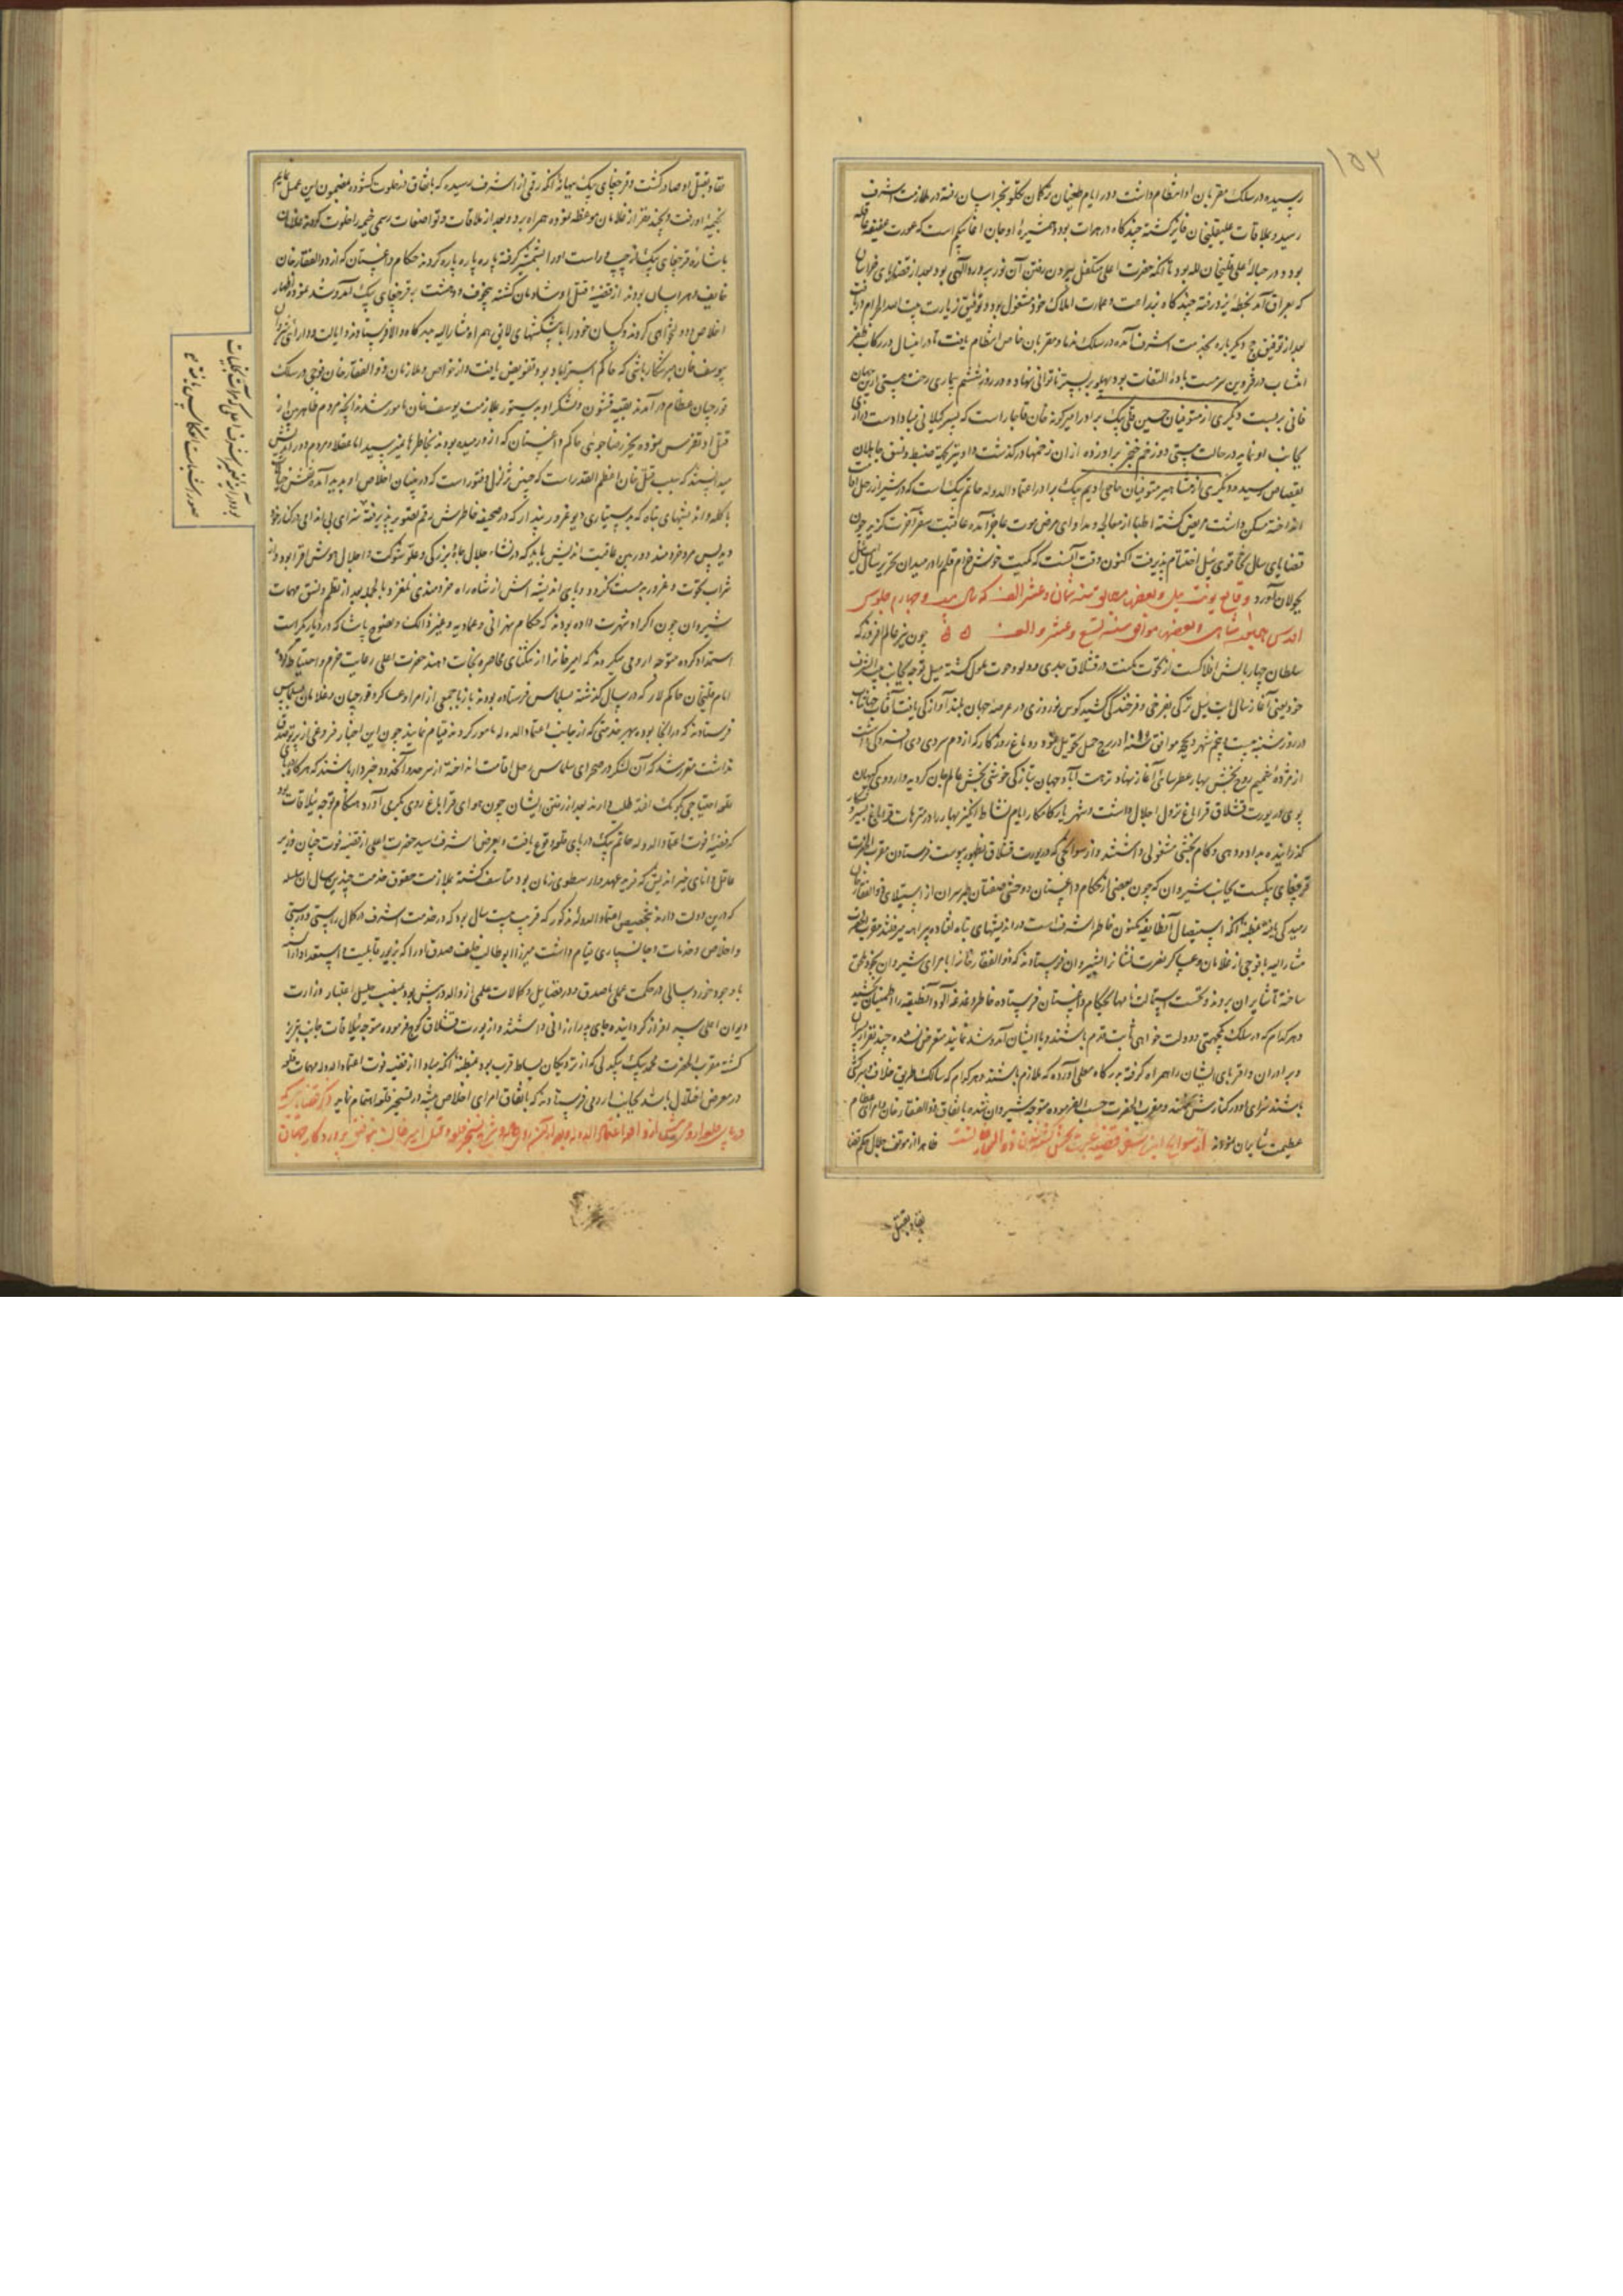 ۱۵۲
رسیده در سلک مقربان او انتظام داشت و در ایام طغیان ترکان تکلو بخراسان رفته در ملازمت اشرف
رسید و بملاقات علیقلیخان فایز گشته چند گاه در هرات بود و همشیرهٔ او جان آغا نیکم است که عورت عفیفه عاقله
بود و در حبالهٔ علی قلیخان لله بود تا آنکه حضرت اعلی متکفل بیرون رفتن آن نور پرورده الهی بود بعد از قضایای خراسان
که بعراق آمد بخطهٔ یزد رفته چند گاه بزراعت و عمارت املاک خود مشغول بود و توفیق زیارت بیت الله الحرام دریافت
بعد از توفیق حج دیگر باره بخدمت اشرف آمده در سلک ندما و مقربان خاص انتظام یافت تا در اینسال در رکاب ظفر
انتساب در قزوین سرمست بادهٔ التفات بود پهلو بر بستر ناتوانی نهاده در روز ششم بیماری رخت هستی ازین جهان
فانی بر بست دیگری از متوفیان حسین قلی بیک برادر امیرکونه خان قاجار است که بسر کیلانی مبادا دست درازی
بجانب او نماید در حالت مستی دو زخم خنجر بر او زده از ان زخمها در گذشت و او نیز بجهة ضبط و نسق جاهلان
بقصاص رسید و دیگری از مشاهیر متوفیان حاجی اویم بیک برادر اعتماد الدوله حاتم بیک است که در شیراز رحل اقامت
انداخته سکن داشت مریض گشته اطبا از معالجه و مداوای مرض موت عاجز آمده عاقبت سفر آخرت گزید چون
قضایای سال تخاقوی ئیل اختتام پذیرفت اکنون وقت آنست که کمیت خوش خرام قلم را در میدان تحریر سال ایت ئیل
بجولان آورد وقایع یونت ئیل و بعضها مطابق سنه ثمان و عشر الف که سال بیست و چهارم جلوس
اقدس همایون شاهی است و بعضها موافق سنه تسع و عشر و الف ۵ ۵ چون نیر عالم افروز که
سلطان چهار بالش افلاکست از تحوت نکست در قشلاق جدی و دلو و حوت ملول گشته میل توجه بجانب بیت الشرف
خود یعنی آغاز سال ایت ئیل ترکی بفرخی و فرخندگی کشید کوس نوروزی در عرصهٔ جهان بلند آوازگی یافت آفتاب جهانتاب
در روز شنبه بیست پنجم شهر ذیحجه موافق سنه ۱۰۱۸ در برج حمل تحویل نمود و باغ روزگار که از دم سردی دی افسردگی داشت
از مژدهٔ شمیم روح بخش بهار عطر سائی آغاز نهاد و نزهت آباد جهان بتازگی خوشی بخش عالم جان گردید و اردوی کیهان
پوی در یورت قشلاق قراباغ نزول اجلال داشت و شهریار کامکار ایام نشاط انگیز بهار را در متنزهات قراباغ بسیر و شکار
گذرانیده بداد و دهی و کام بخشی مشغولی داشتند و از سوانحی که در یورت قشلاق بظهور پیوست فرستادن مقرب الحضرت
قرچغای بیکست بجانب شیروان که چون بعضی از حکام داغستان و وحشی صفتان طبرسران از استیلای ذوالفقار خان
رمیدگی یافته بمظنهٔ آنکه استیصال آنطایفه مکنون خاطر اشرف است در اندیشهای تباه افتاده پیراهه میرفتند مقرب الحضرت
مشار الیه با فوجی از غلامان و عساکر نصرت نشان را بشیروان فرستادند که ذوالفقار خان را با امرای شیروان بخود ملحق
ساخته تا شابران بروند و نخست استمالت نامها بحکام داغستان فرستاده خاطر دغدغه آلود آنطبقه را اطمینان بخشید
و هر کدام که در سلک یکجهتی و دولت خواهی ثابت قدم باشند و با ایشان آمد و شد نمایند متعرض نشده چند نفر از پسران
و برادران و اقربای ایشان را همراه گرفته بدرگاه معلی آورده که ملازم باشند و هر کدام که سالک طریق خلاف و سرکشی
باشند سزای او در کنارش نهند و مقرب الحضرت حسب الفرموده متوجه شیروان شده باتفاق ذوالفقار خان و امرای عظام
عظیمت شابران نمودند از سوانح این سفر قضیه عبرت بخش کشته شدن ذوالفقار است ظاهرا از موقف جلال حکم قضا
نفاد بقتل
نفاد بقتل او صادر گشت و قرچغای بیک ببهانه آنکه رقمی از اشرف رسیده که باتفاق در خلوت گشوده بمضمون این عمل نمائیم
بخیمهٔ او رفت و بچند نفر از غلامان موعظه نموده همراه برد و بعد از ملاقات و تواضعات رسمی خیمه را خلوت کرده غلامان
باشارهٔ قرچغای بیک از چپ و راست او را بشمشیر گرفته پاره پاره کردند حکام داغستان که از ذوالفقار خان
خایف و هراسان بودند از قضیهٔ قتل او شادمان گشته بیخوف و دهشت به قرچغای بیک آمد و شد نموده اظهار
اخلاص و دولتخواهی کردند و کسان خود را با پیشکشهای لایق همراه مشار الیه بدرگاه والا فرستادند و ایالت و دارائی شیروان
یوسف خان میر شکار باشی که حاکم استراباد بود تفویض یافت و از خواص و ملازمان ذوالفقار خان فوجی در سلک
قورچیان عظام در آمدند بقیه قشون و لشکر او بدستور بملازمت یوسف خان مامور شدند آنچه مردم ظاهر بین از
قتل او تفرس نموده بجز رضا جوئی حاکم داغستان که از او رمیده بودند بخاطرها نمیرسید اما عقلا و مردم دور اندیش
میدانستند که سبب قتل خان اعظم القدر است که چنین تزلزل و فتور است که در بنیان اخلاص او پدید آمده
با کلفه و اندیشهای تباه که بدستیاری دیو غرور پندار که در صحیفهٔ خاطرش رقم تصویر پذیرفته سزای بی اندامی در کنار خود
دید پس مرد خردمند دوربین عاقبت اندیش باید که در نشاء جلال جاه بزرگی و علو شوکت و اجلال
شراب نخوت و غرور بد مست نگردد و پای اندیشه اش از شاه راه خردمندی نلغزد و بالجمله بعد از نظم و نسق مهمات
شیروان چون اکراد شهرت داده بودند که حکام سهرانی و عمادیه و غیر ذالک و نصوح پاشا که در دیار بکر است
استمداد کرده متوجه ارومی میگردند که امیر خان را از تنگنای محاصره نجات دهند حضرت اعلی رعایت حزم و احتیاط کرده
امام قلیخان حاکم لار که در سال گذشته بسلماس فرستاده بودند باز با جمعی از امرا و عساکر و قورچیان و غلامان بسلماس
فرستادند که در انجا بوده بهر خدمتی که از جانب اعتماد الدوله مامور گردند قیام نمایند چون این اخبار فروغی از پرتو صدق
نداشت مقرر شد که آن لشکر در صحرای سلماس رحل اقامت انداخته از سرحد وانکنده خبردار باشند که هر گاه بپای
قلعه احتیاجی بکومک افتد طلب دارند بعد از رفتن ایشان چون هوای قراباغ روی بگرمی آورد هنگام توجه ییلاقات بود
که قضیهٔ فوت اعتماد الدوله حاتم بیک در پای قلعه وقوع یافت و بعرض اشرف رسید حضرت اعلی از قضیهٔ فوت چنان وزیر
عاقل دانای خیر اندیش که فرید عهد و ارسطوی زمان بود متاسف گشته بملازمت حقوق خدمت چندین سال آن سلسله
که درین دولت دارند بتخصیص اعتماد الدوله مذکور که قریب بیست سال بود که در خدمت اشرف در کمال راستی و درستی
و اخلاص و خدمات و جانسپاری قیام داشت میرزا ابو طالب خلف صدق او را که بزیور قابلیت و استعداد آراسته
با وجود خورد سالی در حکمت عملی با صدق و در فضایل و کمالات علمی از والد در پیش بود بمنصب جلیل اعتبار وزارت
دیوان اعلی سر افراز گردانیده جای پدر ارزانی داشتند و از یورت قشلاق کوچ فرموده متوجه ییلاقات جانب تبریز
گشته مقرب الحضرت محمد بیک بیکدلی که از نزدیکان بساط قرب بود بمظنهٔ آنکه مبادا از قضیه فوت اعتماد الدوله مهمات قلعه
در معرض اختلال باشد بجانب ارومی فرستادند که باتفاق امرای اخلاص پیشه در تسخیر قلعه اهتمام نماید ذکر قضایائی که
در پای قلعه ارومی شد از واقعه اعتماد الدوله و بعد از تسخیر قلعه و قتل امیر خان بتوفیق پروردگار جهان